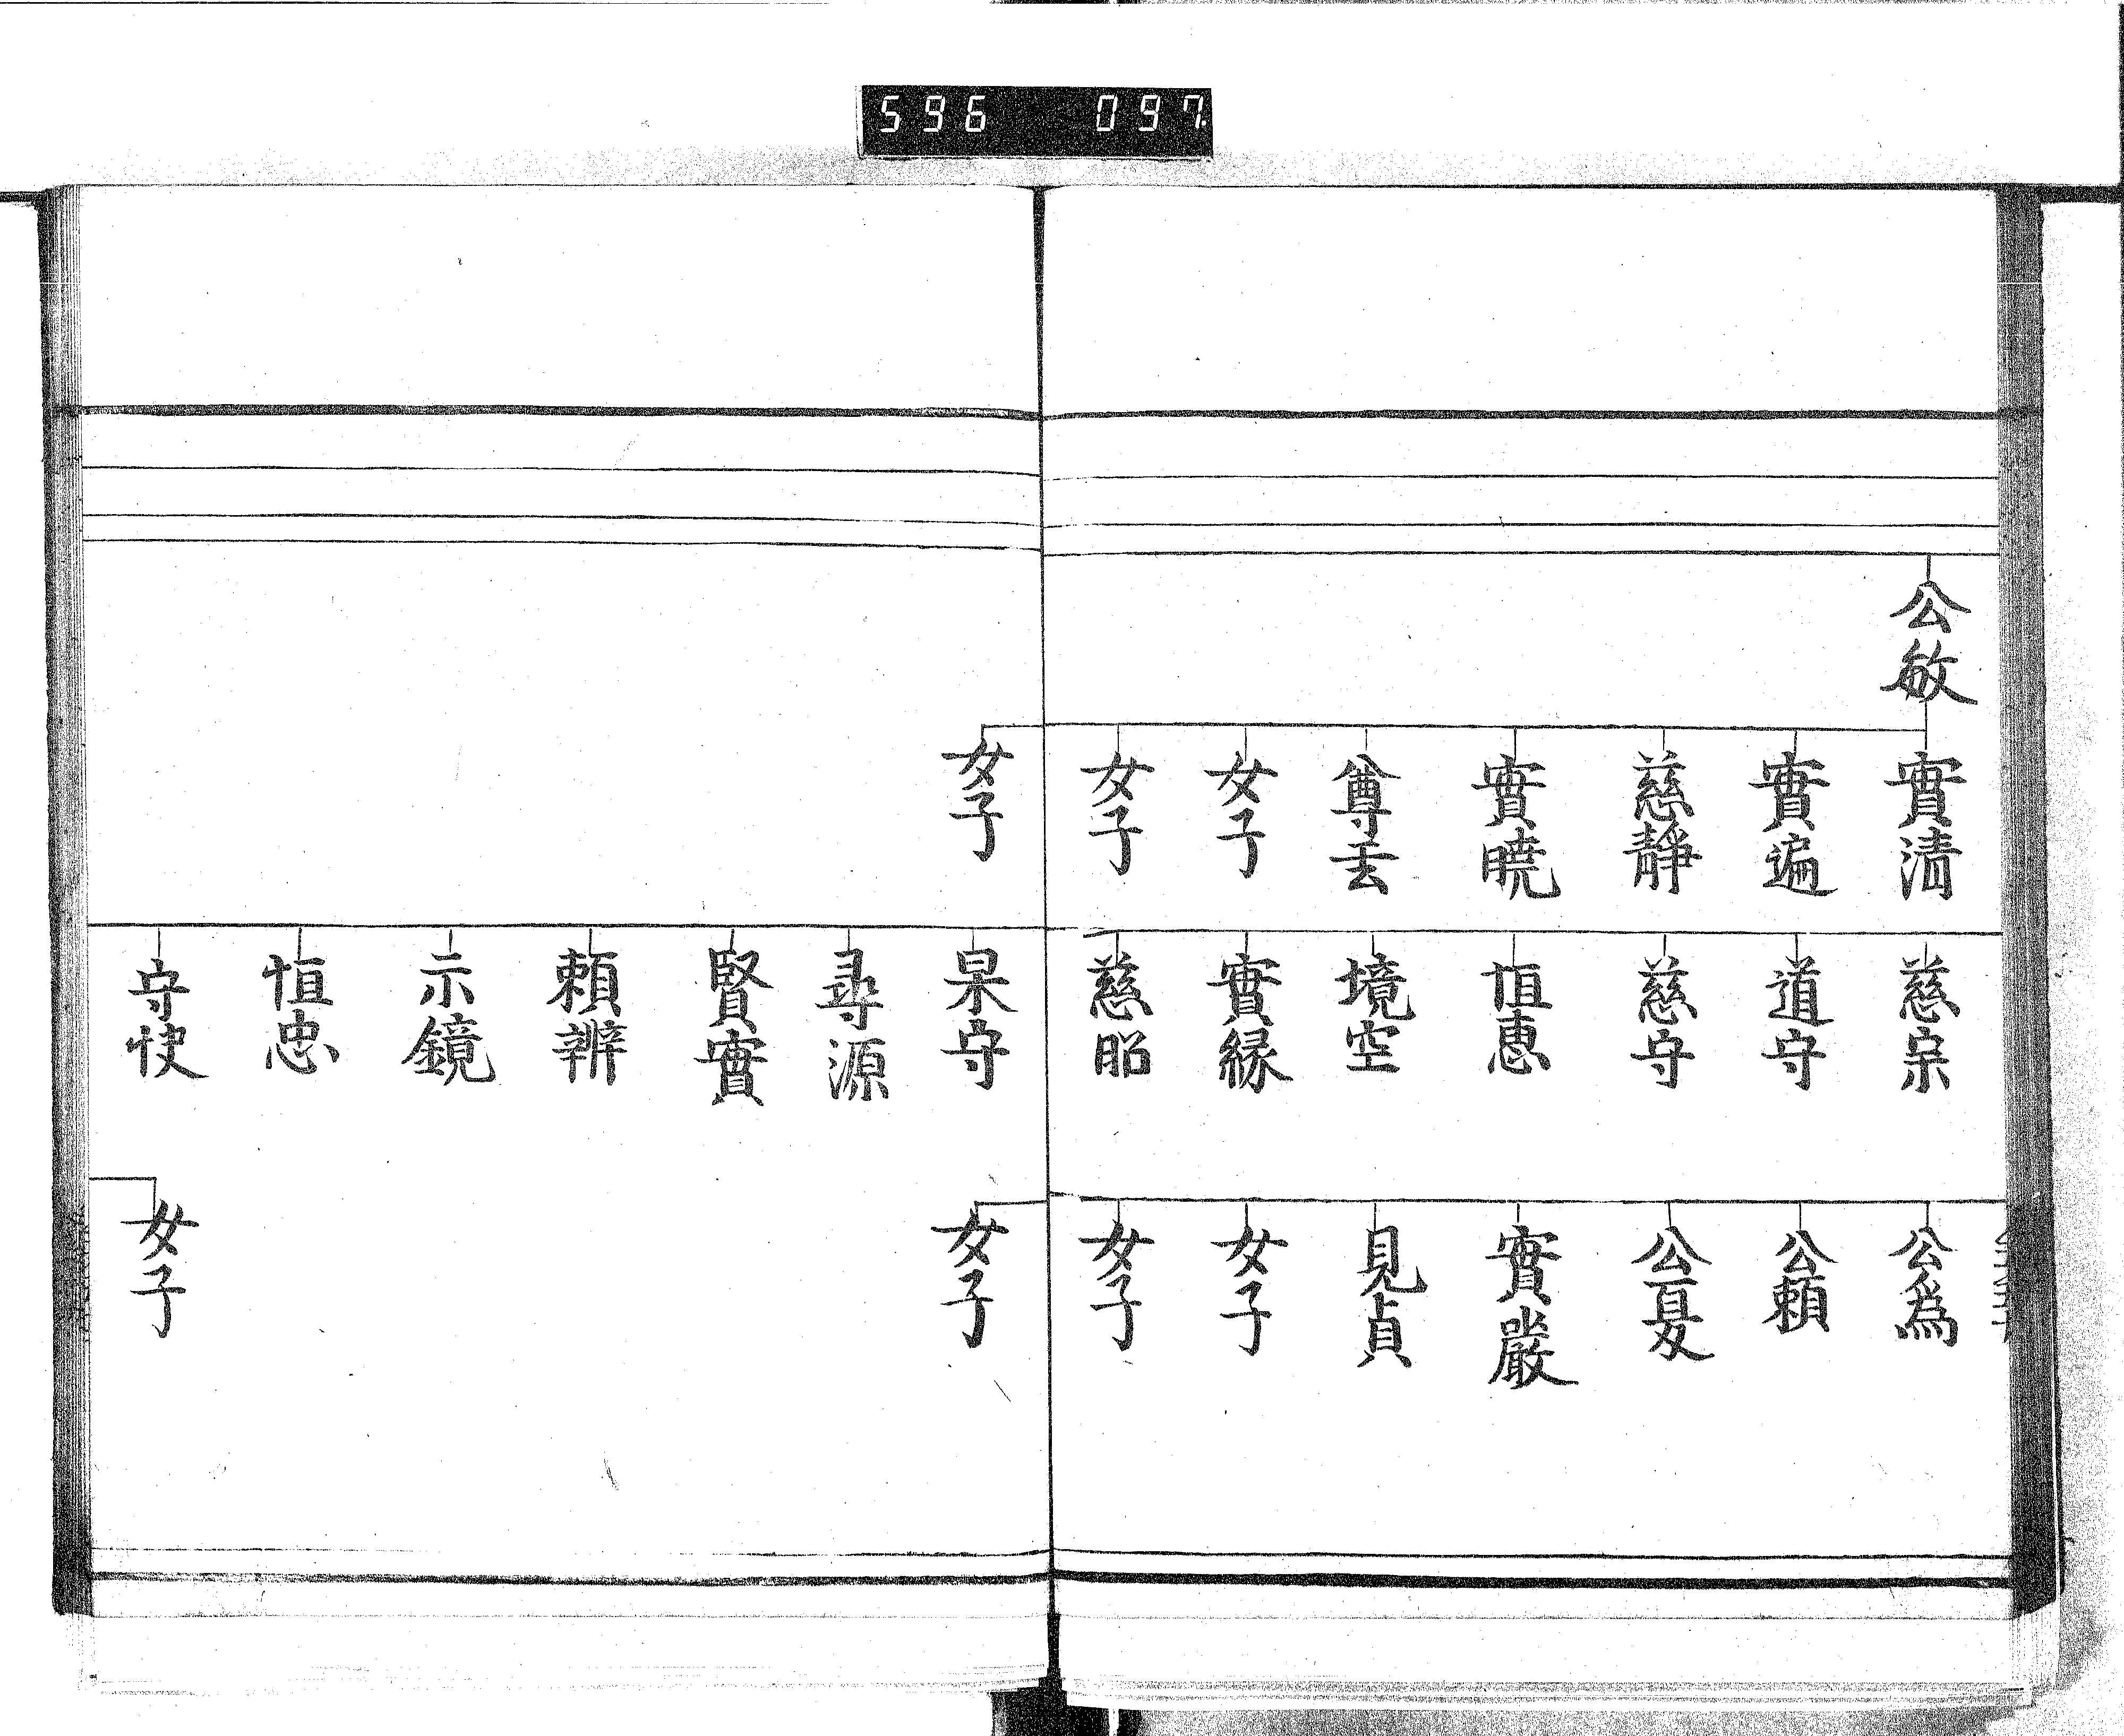 596 097
公敏
實清
實遍
慈靜
實曉
尊玄
女子
女子
女子
慈宗
道守
慈守
恒惠
境空
實縁
慈昭
杲守
尋源
賢實
頼辨
示鏡
恒忠
守快
公爲
公頼
公夏
實嚴
見貞
女子
女子
女子
女子